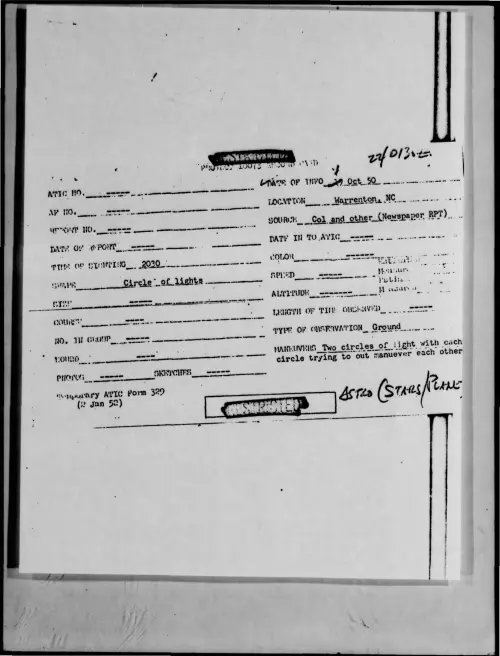 22/0130Z
PROJECT 10073 RECORD CARD
ATIC NO. -----
DATE OF INFO Oct 50
AF NO. -----
LOCATION Warrenton, NC
REPORT NO. -----
SOURCE Col and other (Newspaper RPT)
DATE OF REPORT -----
DATE IN TO ATIC -----
TIME OF SIGHTING 2030
COLOR -----
SHAPE Circle of lights
SPEED -----
SIZE -----
ALTITUDE -----
COURSE -----
LENGTH OF TIME OBSERVED -----
NO. IN GROUP -----
TYPE OF OBSERVATION Ground
SOUND -----
MANEUVERS Two circles of light with each
circle trying to out manuever each other
PHOTOS ----- SKETCHES -----
Temporary ATIC Form 329
(2 Jan 52)
RESTRICTED
ASTRO (STARS/PLANE